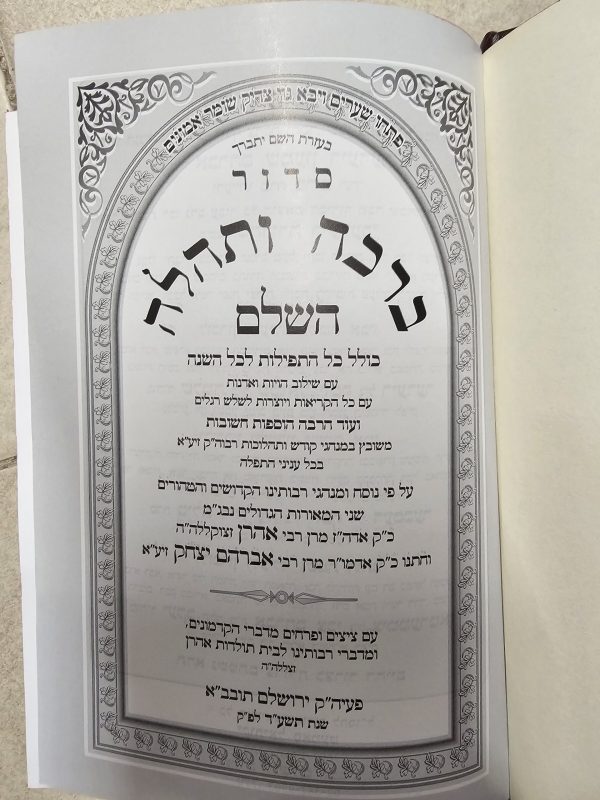 פתחו שערים ויבא גוי צדיק שומר אמונים
בעזרת השם יתברך
סדור
ברכה ותהלה
השלם
כולל כל התפילות לכל השנה
עם שילוב הויות ואדנות
עם כל הקריאות ויוצרות לשלש רגלים
ועוד הרבה הוספות חשובות
משובץ במנהגי קודש ותהלוכות רבוה"ק זיע"א
בכל עניני התפלה
על פי נוסח ומנהגי רבותינו הקדושים והטהורים
שני המאורות הגדולים נבג"מ
כ"ק אדה"ז מרן רבי אהרן זצוקללה"ה
וחתנו כ"ק אדמו"ר מרן רבי אברהם יצחק זיע"א
עם ציצים ופרחים מדברי הקדמונים,
ומדברי רבותינו לבית תולדות אהרן
זצללה"ה
פעיה"ק ירושלם תובב"א
שנת תשע"ד לפ"ק